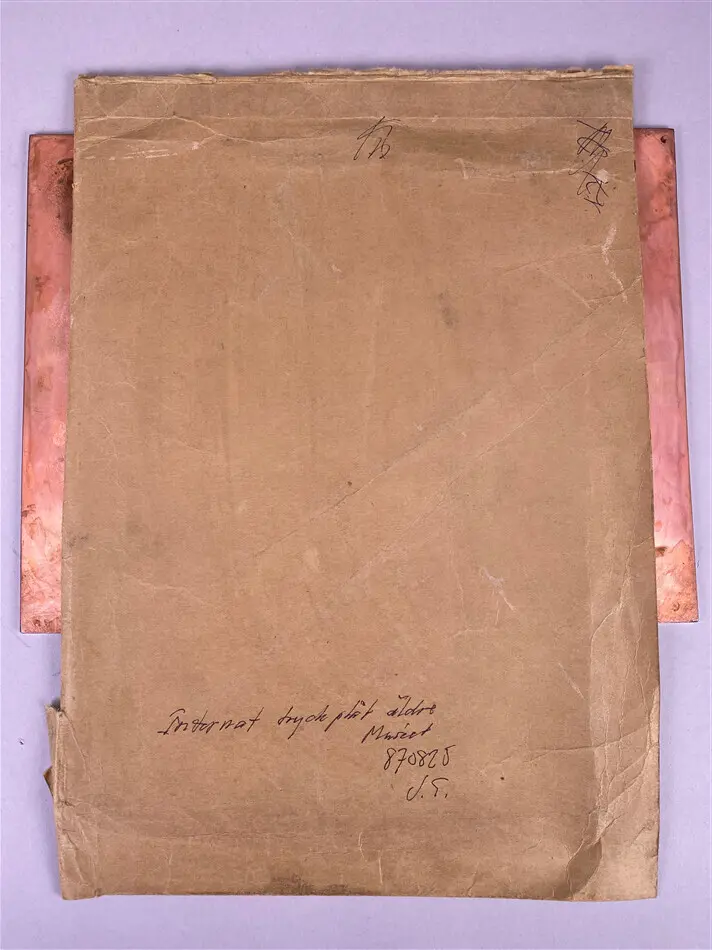 Internat tryckplåt äldre
Museet
870825
J.E.